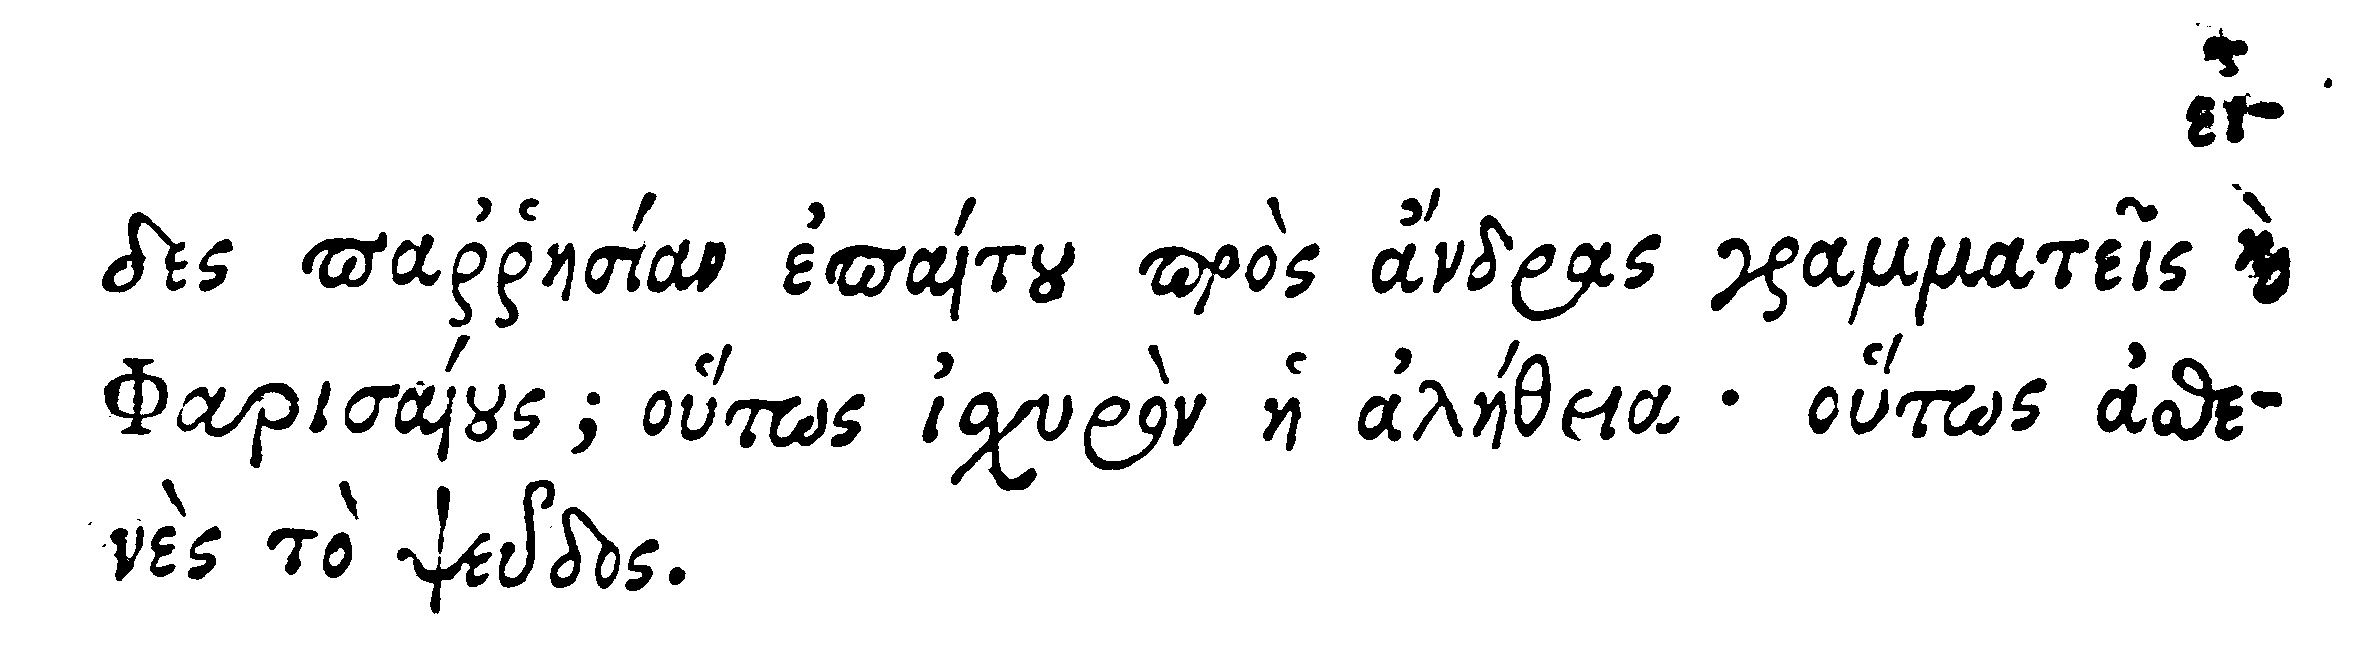 δες παῤῥησίαν ἐπαίτου πρὸς ἄνδρας γραμματεῖς καὶ
Φαρισαίους; οὕτως ἰσχυρὸν ἡ ἀλήθεια · οὕτως ἀσθε-
νὲς τὸ ψεῦδος.